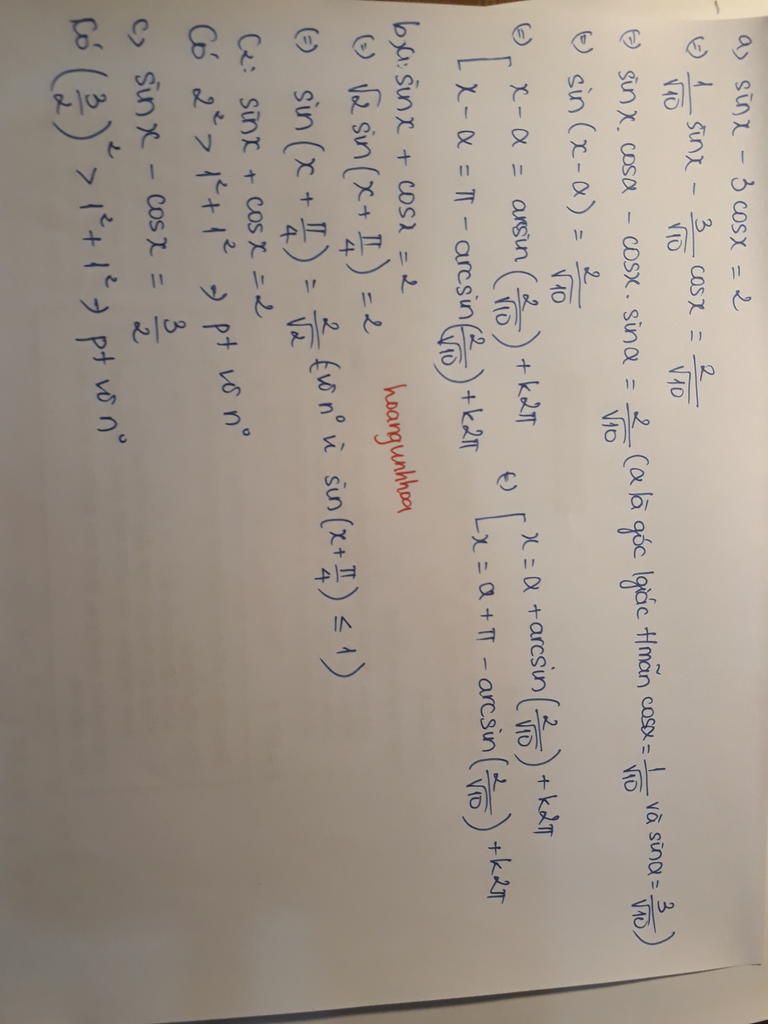 a) sinx - 3cosx = 2
(=) 1/√10 sinx - 3/√10 cosx = 2/√10
(=) sinx. cosα - cosx. sinα = 2/√10 (α là góc lgiác t/mãn cosα = 1/√10 và sinα = 3/√10)
(=) sin(x - α) = 2/√10
(=) [ x - α = arsin(2/√10) + k2π
[ x - α = π - arcsin(2/√10) + k2π
(=) [ x = α + arcsin(2/√10) + k2π
[ x = α + π - arcsin(2/√10) + k2π
b, sinx + cosx = 2
(=) √2 sin(x + π/4) = 2
(=) sin(x + π/4) = 2/√2 (vô n° vì sin(x + π/4) ≤ 1)
C2: sinx + cosx = 2
Có 2² > 1² + 1² → pt vô n°
c, sinx - cosx = 3/2
Có (3/2)² > 1² + 1² → pt vô n°
hoangunhhoa